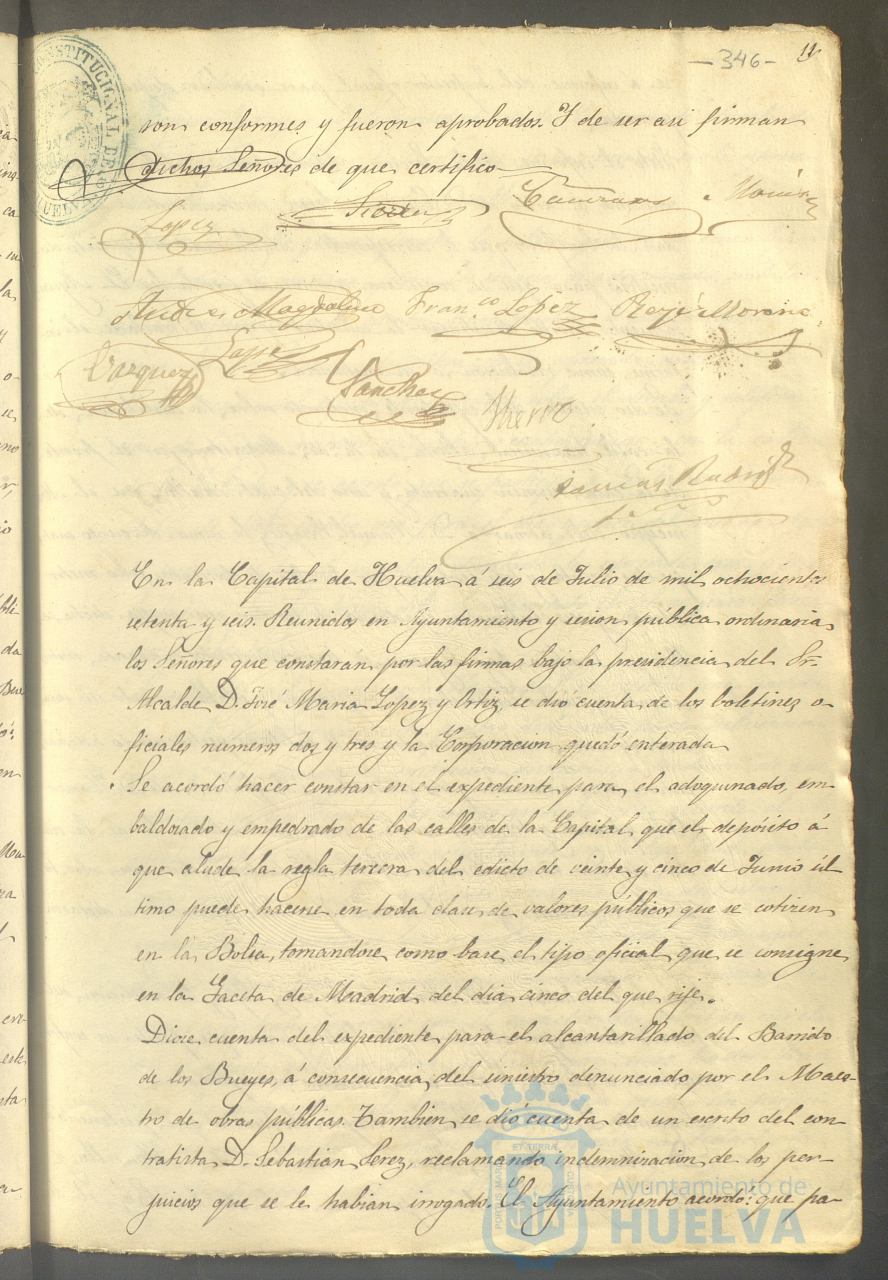 -346-
11
CONSTITUCIONAL DE
HUELVA
son conformes y fueron aprobados. Y de ser asi firman
dichos Señores de que certifico
Lopez
Garcia
Magdalena Fran.co Lopez Moreno
Vazquez Lopez
Sanchez
En la Capital de Huelva á seis de Julio de mil ochocientos
setenta y seis. Reunidos en Ayuntamiento y sesion pública ordinaria
los Señores que constarán por las firmas bajo la presidencia del Sr.
Alcalde D. José Maria Lopez y Ortiz, se dió cuenta de los boletines o
ficiales numeros dos y tres y la Corporacion quedó enterada
Se acordó hacer constar en el expediente para el adoquinado, em
baldosado y empedrado de las calles de la Capital, que el depósito á
que alude la regla tercera del edicto de veinte y cinco de Junio úl
timo puede hacerse en toda clase de valores públicos que se cotizen
en la Bolsa, tomandose como base el tipo oficial que se consigne
en la Gaceta de Madrid del dia cinco del que rije.
Diose cuenta del expediente para el alcantarillado del Barrido
de los Bueyes, á consecuencia del siniestro denunciado por el Maes-
tro de obras públicas. Tambien se dió cuenta de un escrito del con
tratista D. Sebastian Perez, reclamando indemnizacion de los per-
juicios que se le habian irrogado. El Ayuntamiento acordó: que pa-
Ayuntamiento de
HUELVA